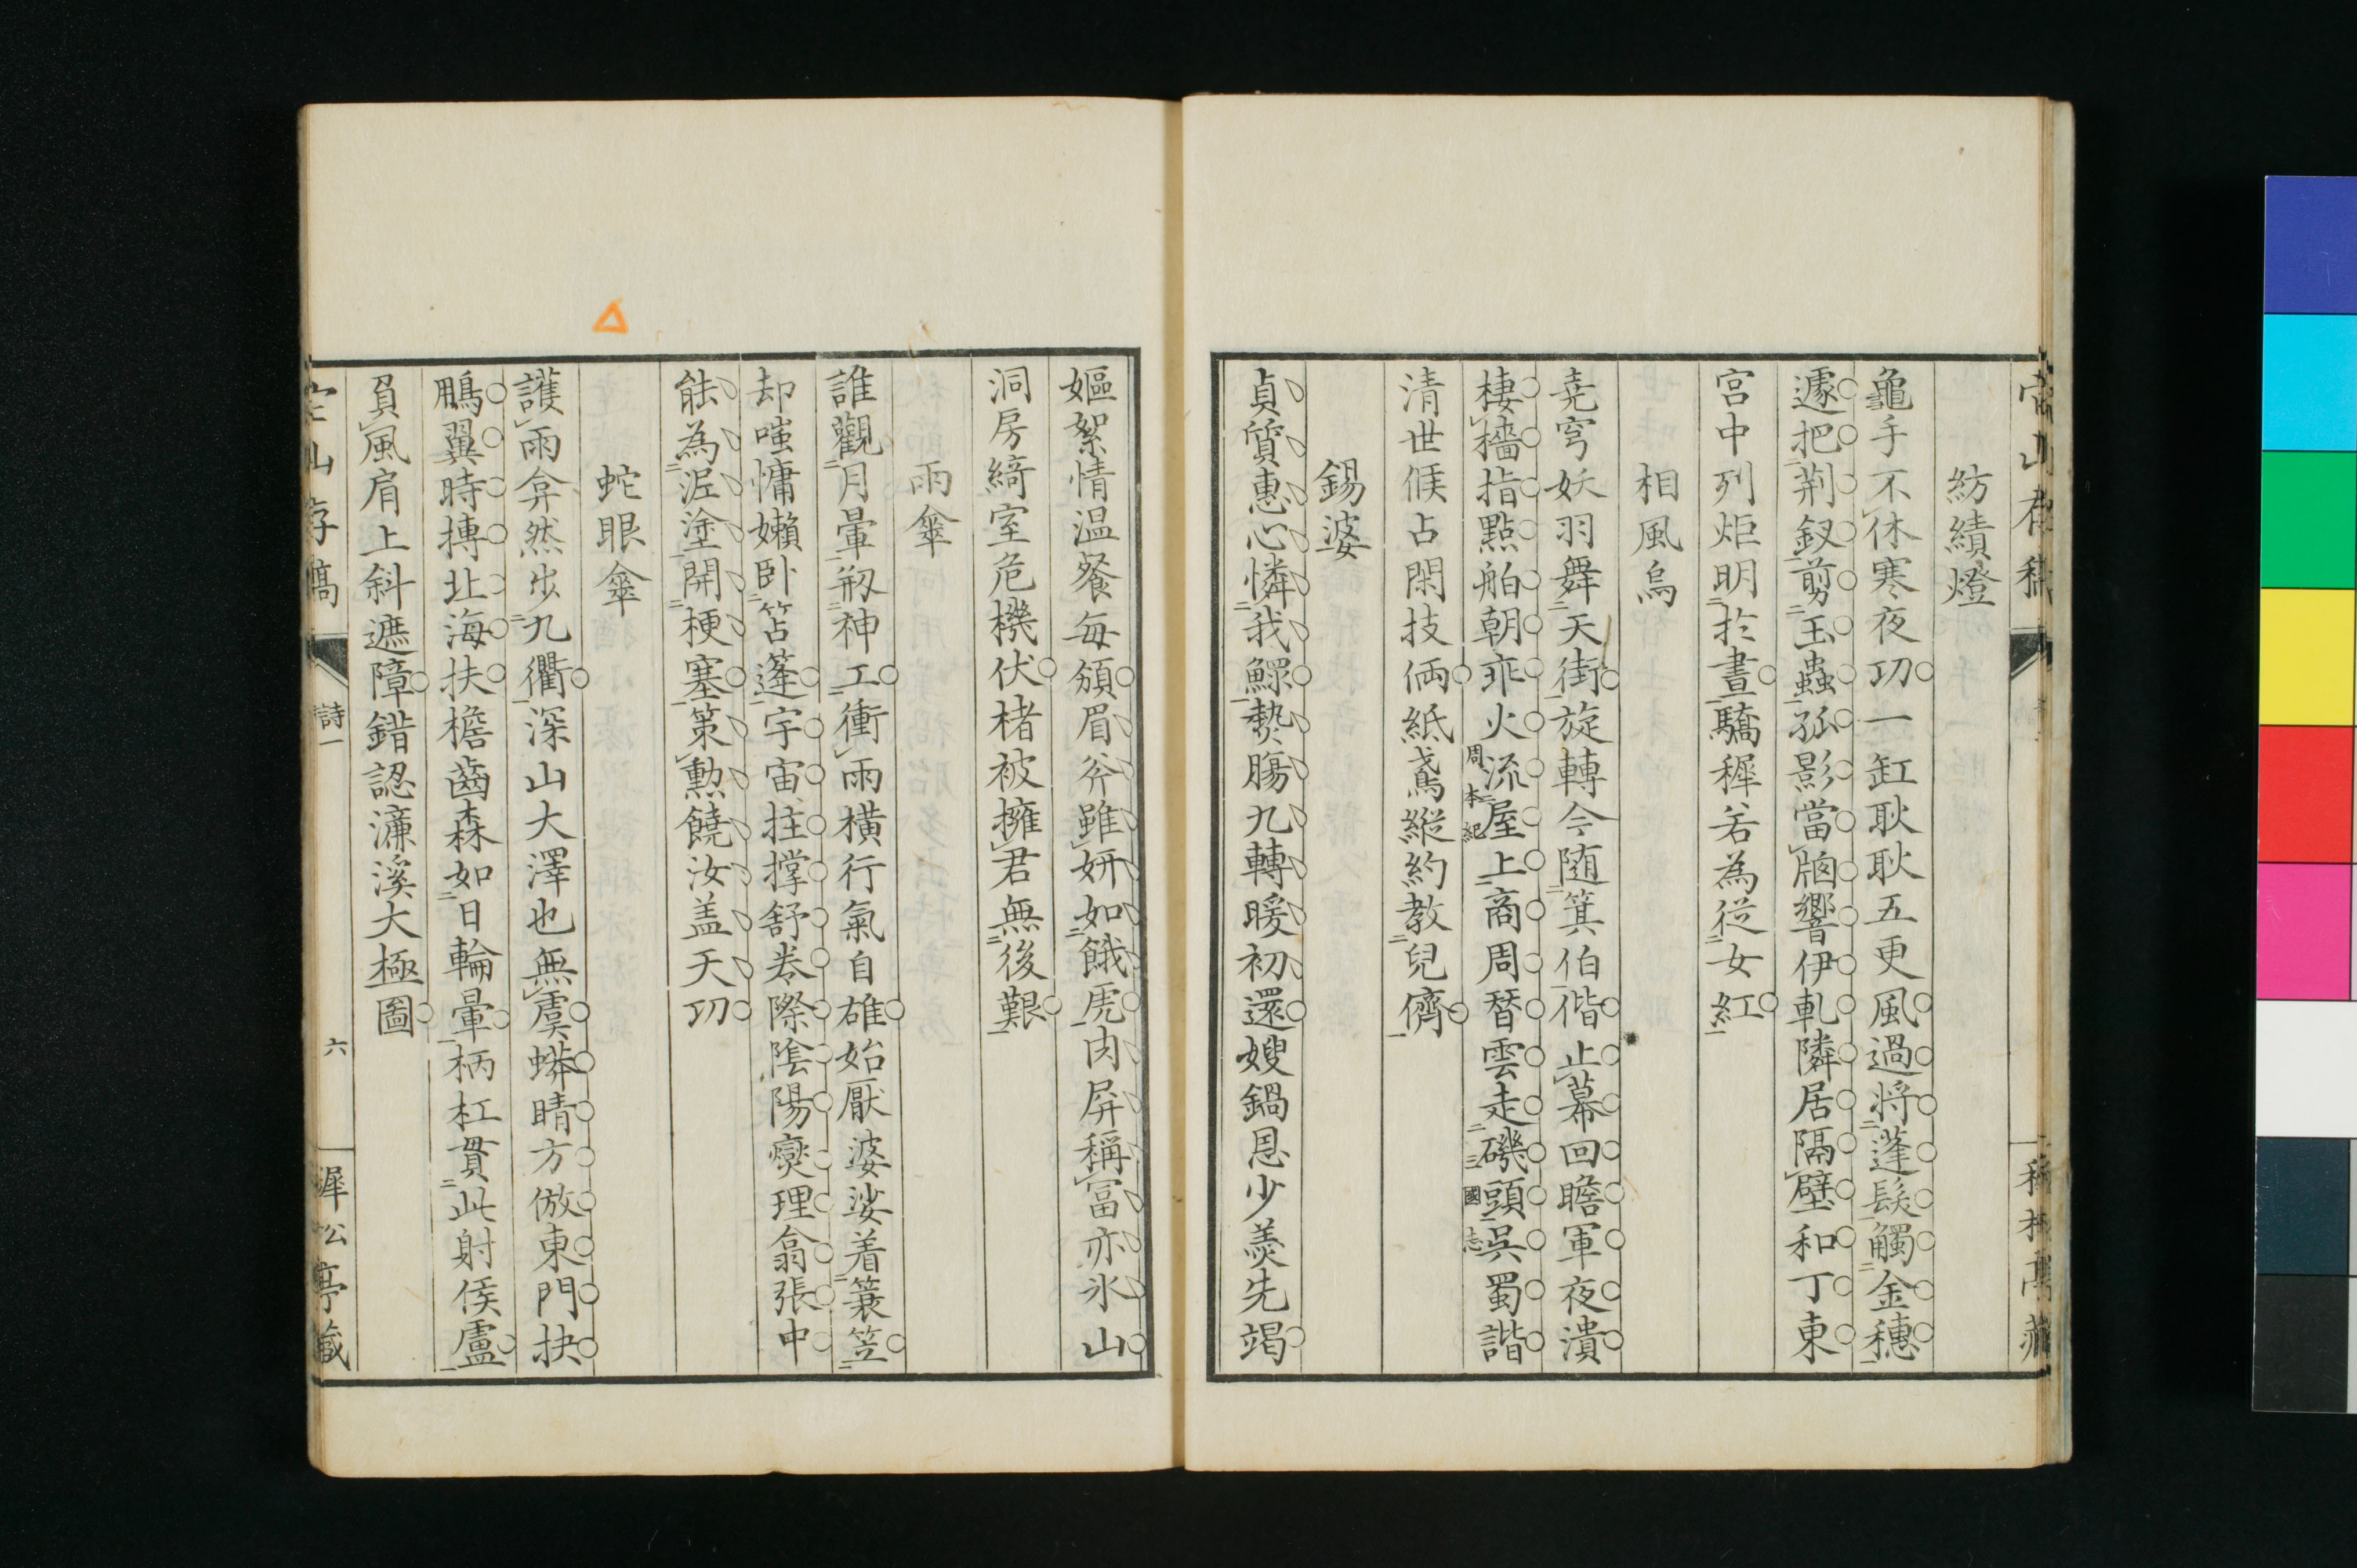 紡績燈
龜手不休寒夜功一缸耿耿五更風過將蓬髮觸金穗
遽把荊釵剪玉蟲孤影當牕響伊軋隣居隔壁和丁東
宮中列炬明於晝驕穉若為從女紅
相風烏
堯穹妖羽舞天街旋轉今随箕伯偕止幕回瞻軍夜潰
棲檣指點舶朝乖火流屋上商周替雲走磯頭吳蜀諧
周本紀
三國志
清世候占閑技倆紙鳶縱約教兒儕
錫婆
貞質惠心憐我鰥熱腸九轉暖初還嫂鍋恩少羹先竭
嫗絮情温餐每頒眉斧雖妍如餓虎肉屏稱冨亦氷山
洞房綺室危機伏楮被擁君無後艱
雨傘
誰觀月暈剏神工衝雨横行氣自雄始厭婆娑着簑笠
却嗤慵嬾臥篛蓬宇宙拄撑舒巻際陰陽燮理翕張中
能為泥塗開梗塞策勲饒汝盖天功
蛇眼傘
護雨弇然步九衢深山大澤也無虞蟒睛方倣東門抉
鵬翼時搏北海扶檐齒森如日輪暈柄杠貫此射侯盧
負風肩上斜遮障錯認濂溪大極圖
詩一
六